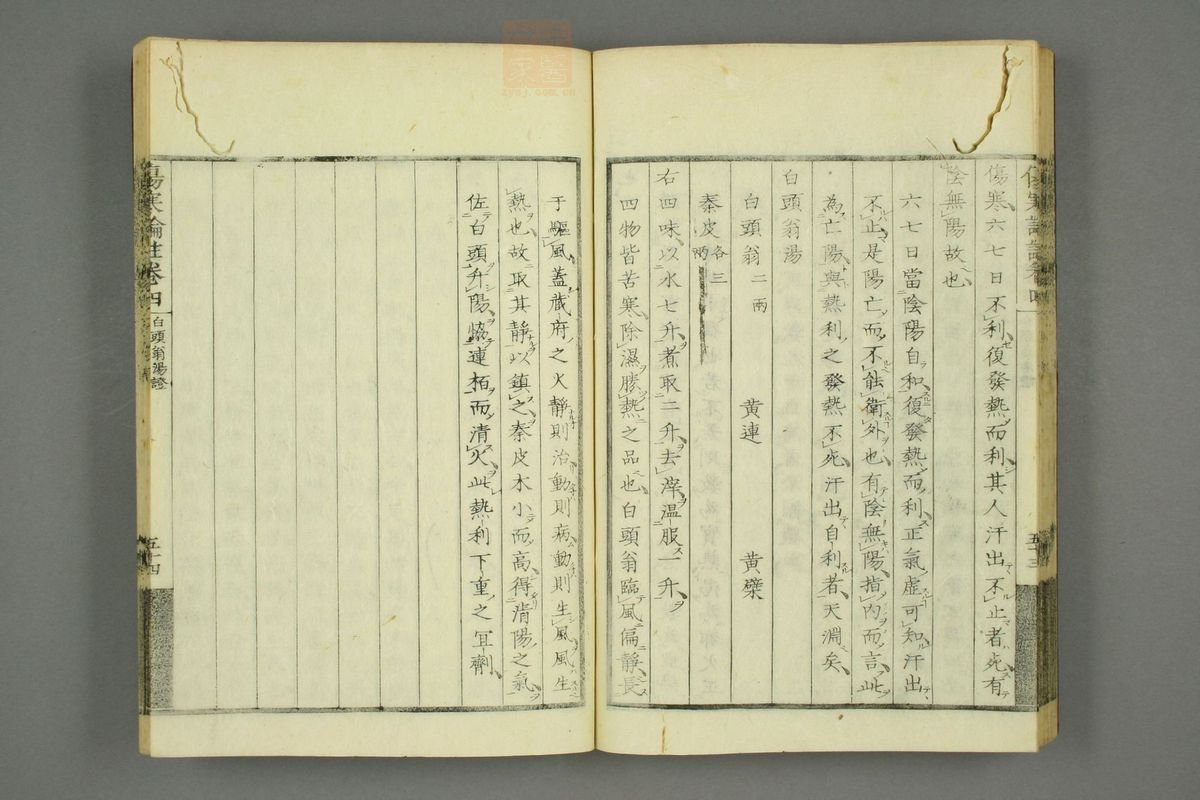 傷寒六七日不利復發熱而利其人汗出不止者死有
陰無陽故也
六七日當陰陽自和復發熱而利正氣虛可知汗出
不止是陽亡而不能衛外也有陰無陽指内而言此
為亡陽與熱利之發熱不死汗出自利者天淵矣
白頭翁湯
白頭翁二兩 黃連 黃蘗
秦皮各三兩
右四味以水七升煮取二升去滓溫服一升
四物皆苦寒除濕勝熱之品也白頭翁臨風偏靜長
于驅風蓋藏府之火靜則治動則病動則生風風生
熱也故取其靜以鎮之秦皮木小而高得清陽之氣
佐白頭升陽恊連栢而清火此熱利下重之宜劑
傷寒論註卷四
白頭翁湯證
五十四
傷寒論註卷四
五十三
家醫
zysj.com.cn